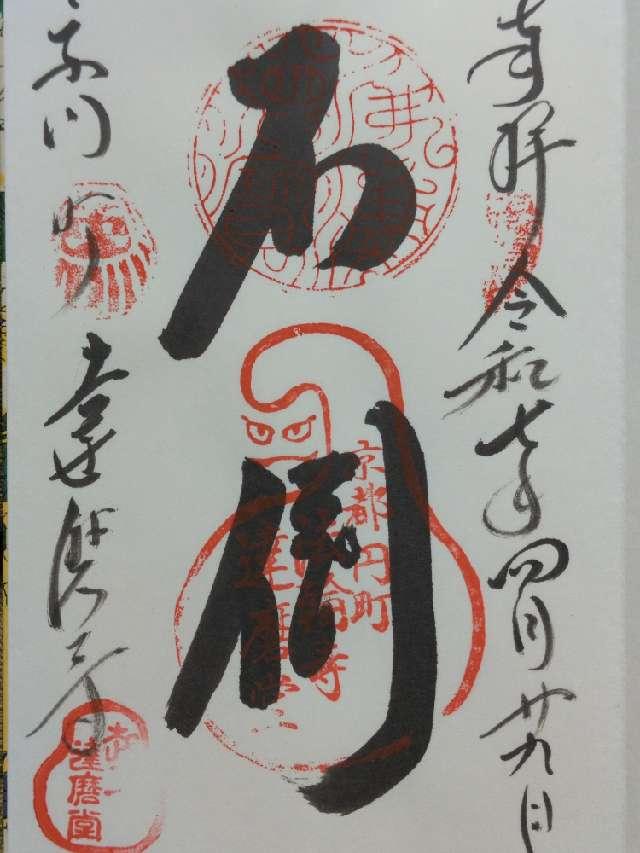 奉拝 令和七年四月廿九日
不倒
京都円町
法輪寺
達磨堂
京円町 達磨寺
達磨堂